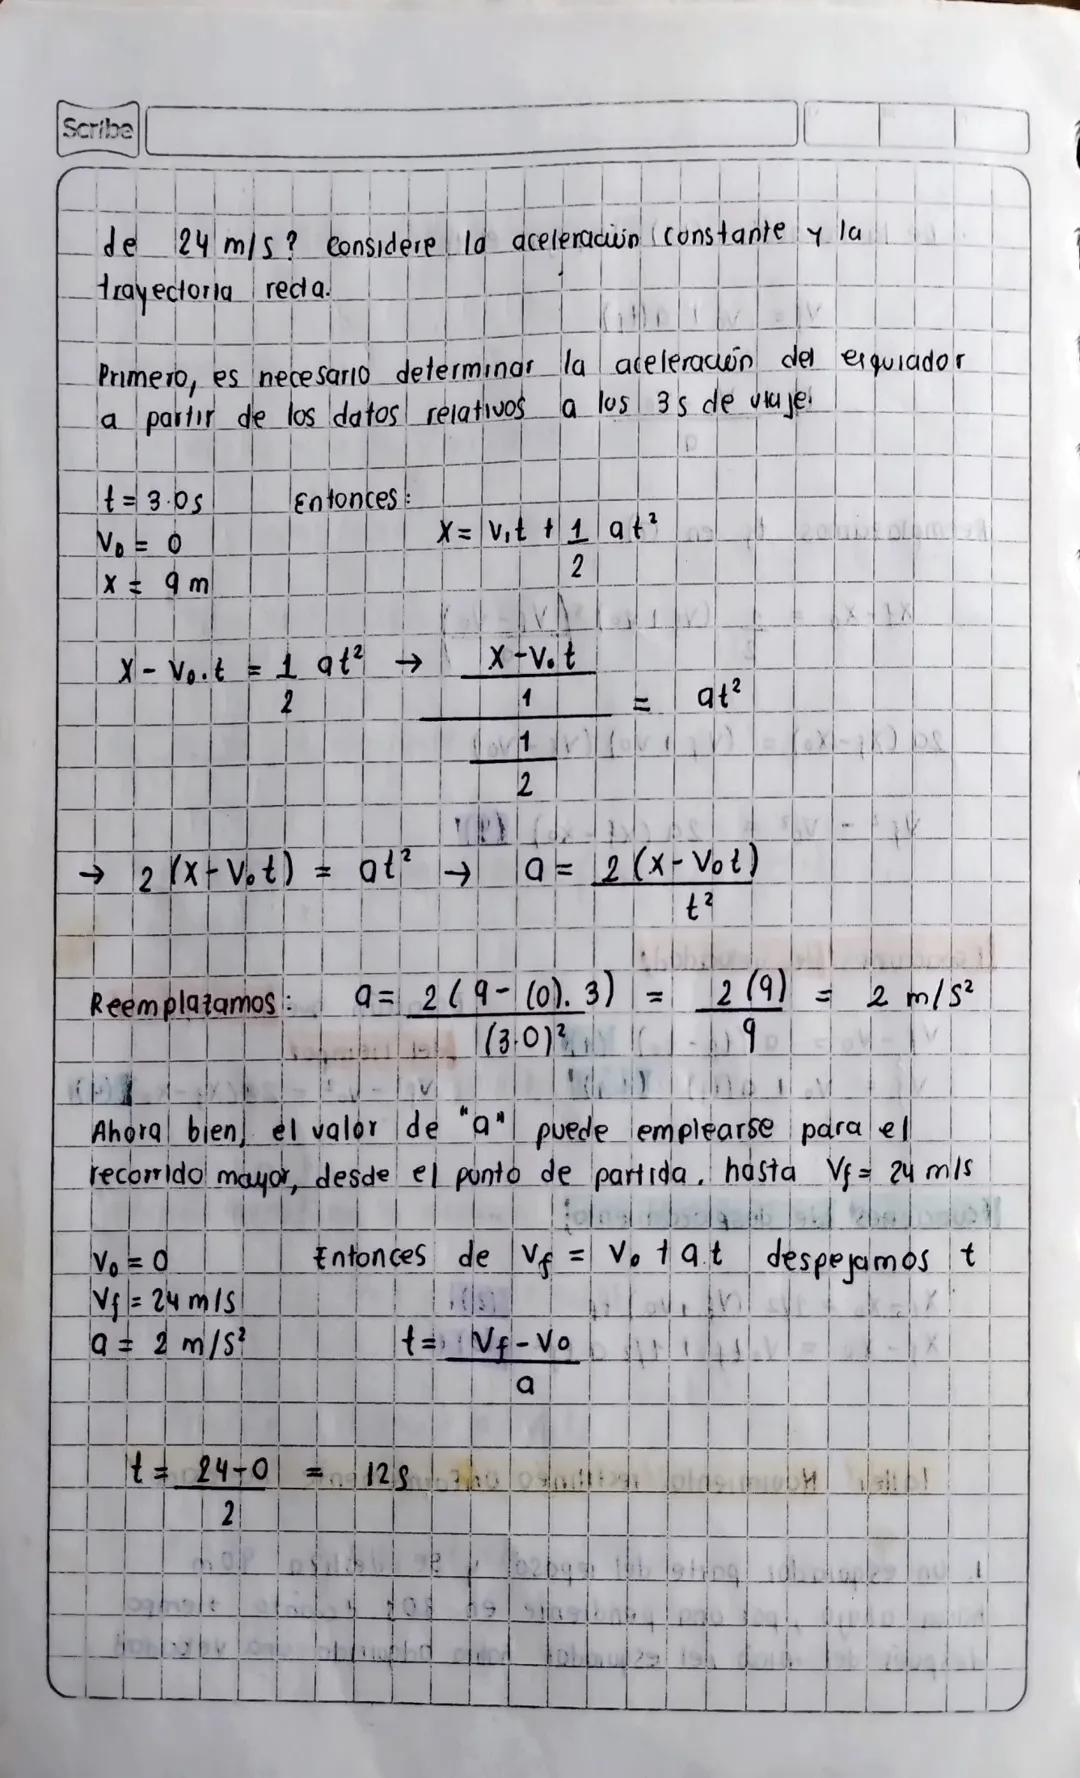 Scribe
de 24 m/s? considere la aceleración constante y la
trayectoria recta.
Primero, es necesario determinar la aceleración del esquiador
a partir de los datos relativos a los 3s de viaje.
t = 3.0s Entonces:
V₀ = 0 X = V₁t + 1/2 at²
X = 9 m
X - V₀.t = 1/2 at² → (X - V₀t / 1) / (1/2) = at²
→ 2 (X - V₀t) = at² → a = 2 (X - V₀t) / t²
Reemplazamos: a = 2 (9 - (0). 3) / (3.0)² = 2 (9) / 9 = 2 m/s²
Ahora bien, el valor de "a" puede emplearse para el
recorrido mayor, desde el punto de partida, hasta Vf = 24 m/s
V₀ = 0 Entonces de Vf = V₀ + a.t despejamos t
Vf = 24 m/s
a = 2 m/s² t = Vf - V₀ / a
t = 24 - 0 / 2 = 12s